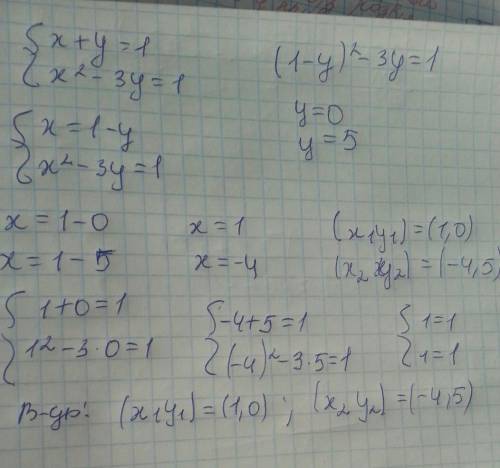 x + y = 1
x² - 3y = 1
(1-y)² - 3y = 1
x = 1-y
x² - 3y = 1
y = 0
y = 5
x = 1-0
x = 1-5
x = 1
x = -4
(x₁y₁) = (1,0)
(x₂ y₂) = (-4,5)
1+0=1
1² - 3·0 = 1
-4+5=1
(-4)² - 3·5=1
1=1
1=1
В-дь: (x₁y₁) = (1,0) ; (x₂ y₂) = (-4,5)